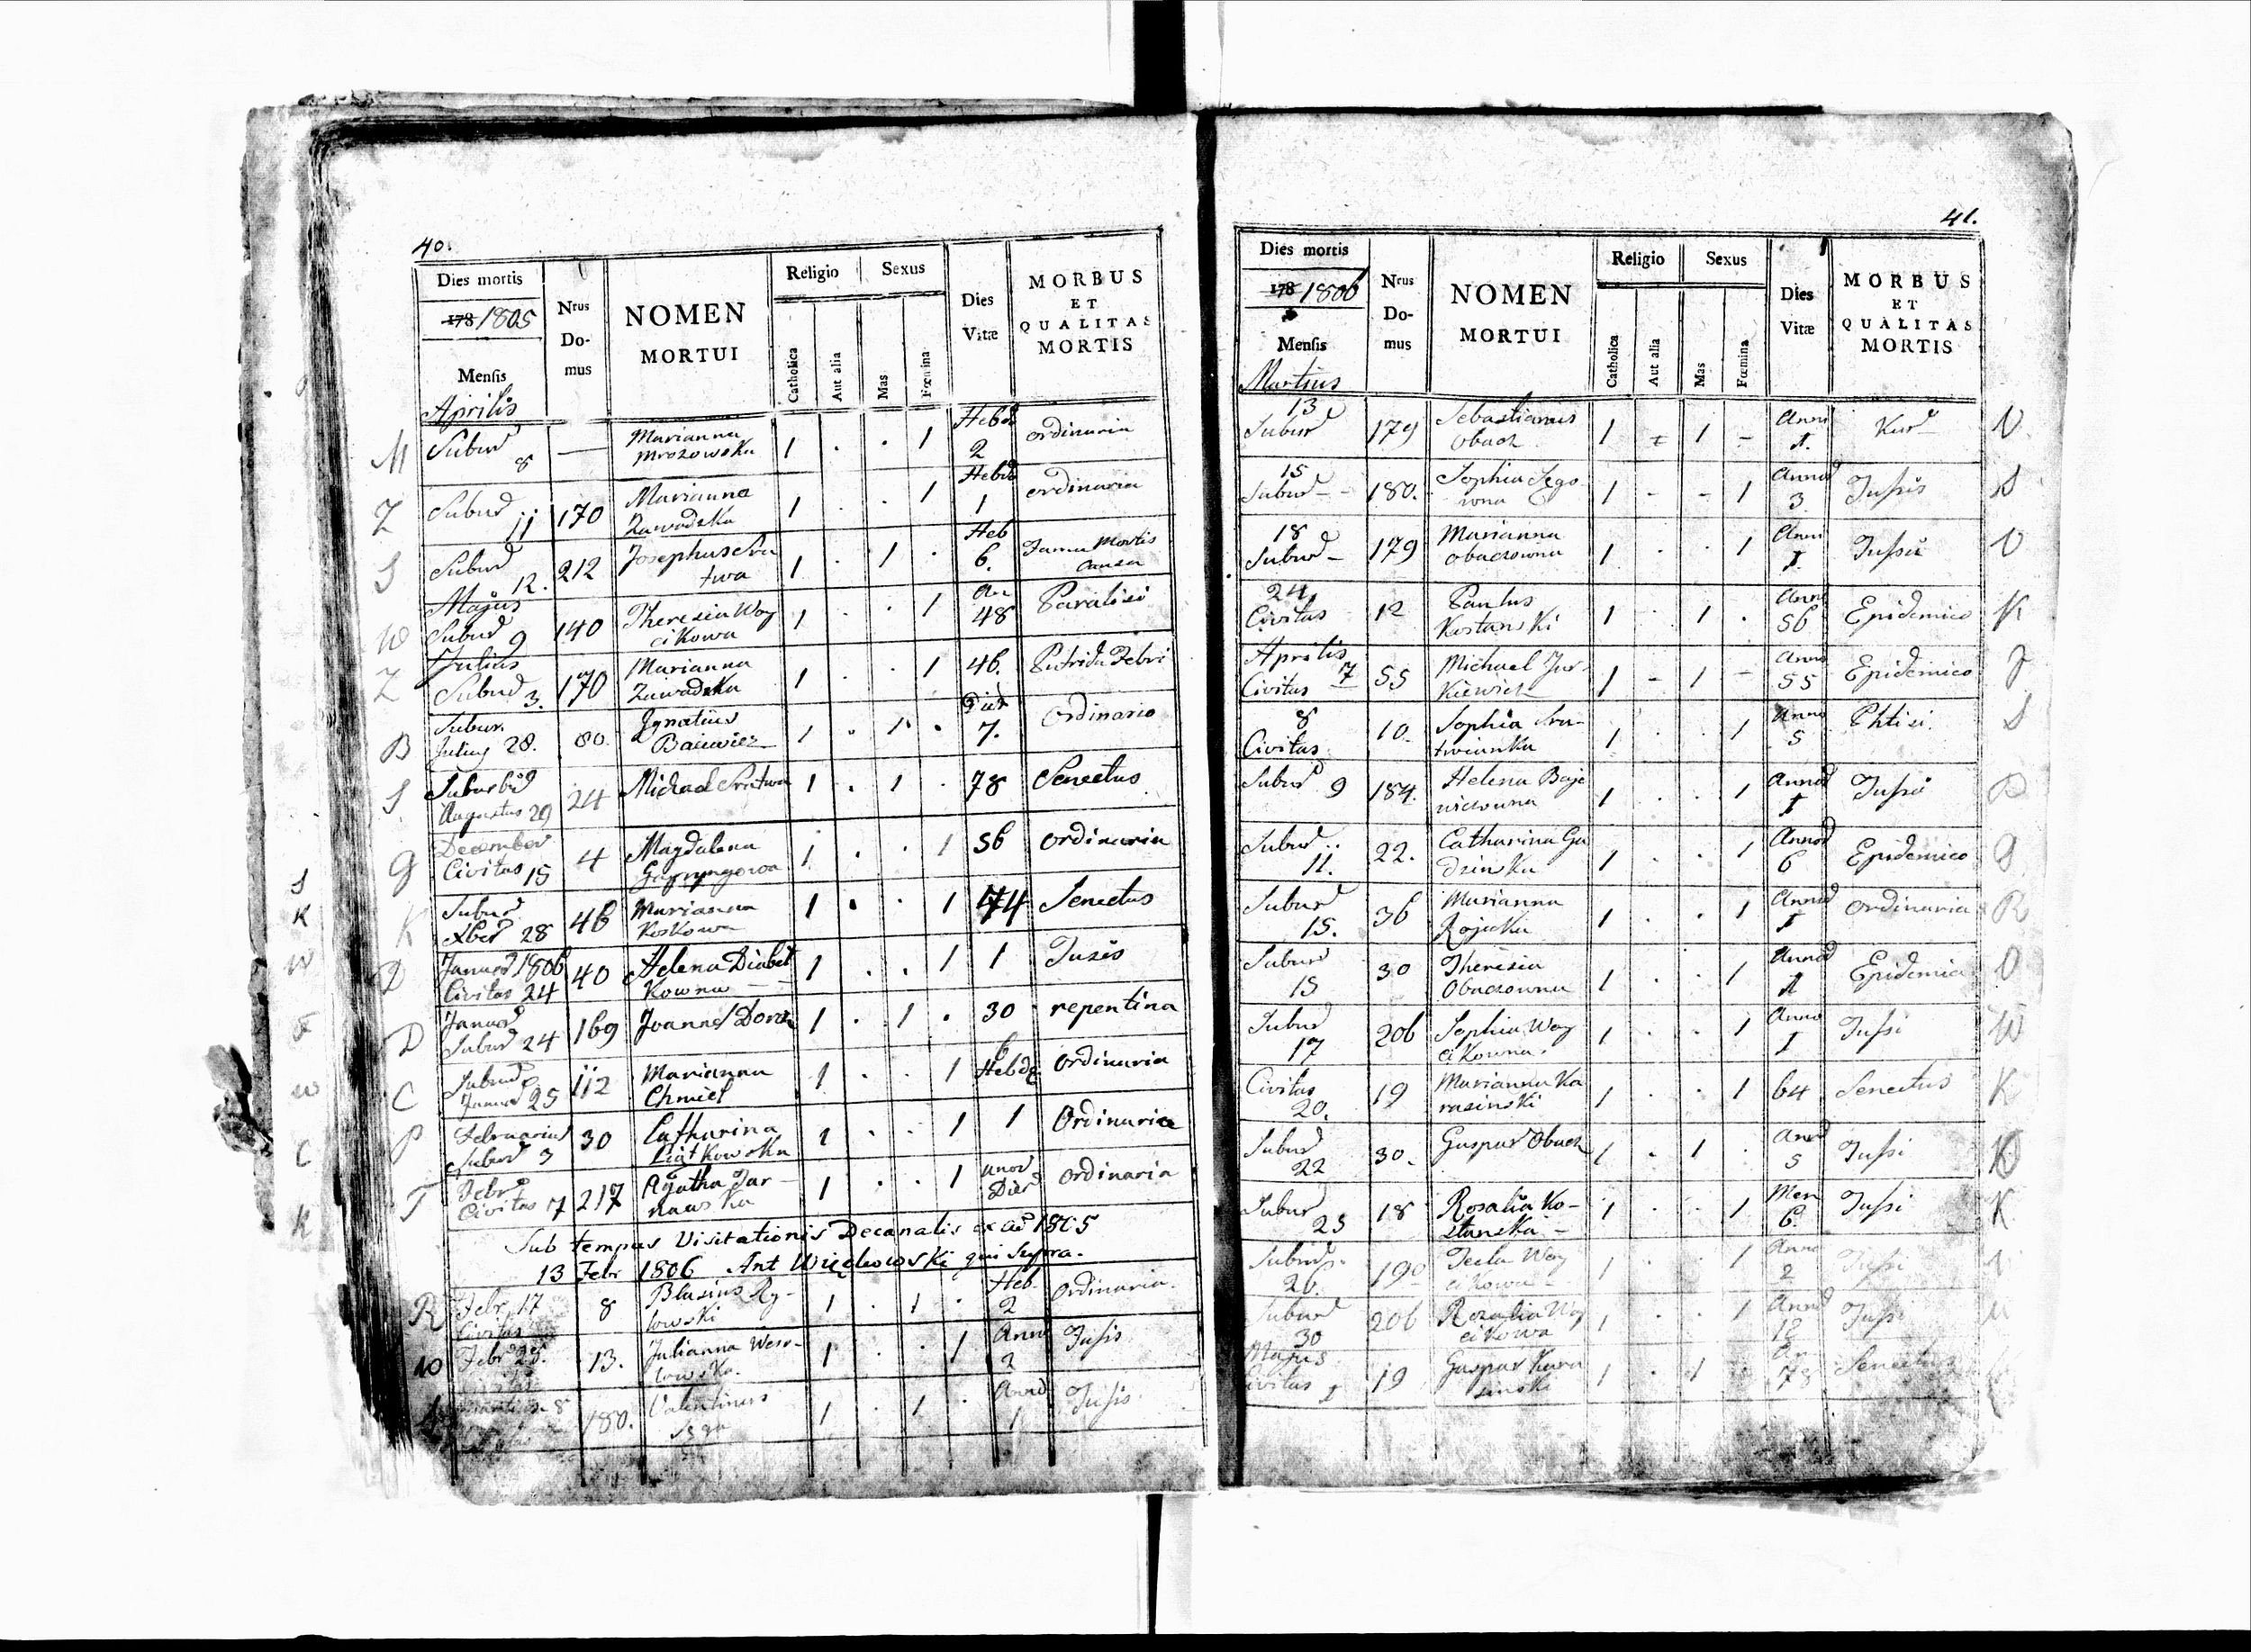 40.
Dies mortis
178 1805
Mensis
Aprilis
Nrus Do- mus
NOMEN
MORTUI
Religio
Catholica
Aut alia
Sexus
Mas
Fœmina
Dies
Vitæ
MORBUS
ET
QUALITAS
MORTIS
M Subur 8 — Marianna Mrozowska 1 . . 1 Hebd 2 ordinaria
Z Subur 11 170 Marianna Zawadzka 1 . . 1 Hebd 1 ordinaria
S Subur 12. 212 Josephus Sra twa 1 . 1 . Heb 6. Mortis causa
W Majus Subur 9 140 Theresia Woy cikowa 1 . . 1 An 48 Paralisi
Z Julius Subur 3. 170 Marianna Zawadzka 1 . . 1 46. Putrida Febri
B Subur. Julius 28. 80. Ignatius 1 . 1 . Dier 7. Ordinario
S Suburbi Augustus 29 24 Michael 1 . 1 . 78 Senectus
G December Civitas 15 4 Magdalena 1 . . 1 56 ordinaria
K Subur Xber 28 46 Marianna Koskowa 1 . . 1 74 Senectus
D Januar 1806 Civitas 24 40 Helena Diabel kowna 1 . . 1 1 Tusis
D Januar Subur 24 169 Joannes 1 . 1 . 30 repentina
C Subur Januar 25 112 Marianna Chmiel 1 . . 1 6 Hebd ordinaria
P Februarius Subur 3 30 Catharina Piątkowska 1 . . 1 1 Ordinaria
T Febr Civitas 7 217 Agatha Tar- nawska 1 . . 1 Dier ordinaria
Sub tempus Visitationis Decanalis ex a 1805
13 Febr 1806 Ant qui supra.
R Febr 17 Civitas 8 Blasius Ry- towski 1 . 1 . Heb. 2 Ordinaria.
W Febr 25. 13. Julianna Weso- lowska. 1 . . 1 Anno 2 Tussis
8 180. Valentinus Zega 1 . 1 . Anno 1 Tussis
41.
Dies mortis
178 1806
Mensis
Martius
Nrus Do- mus
NOMEN
MORTUI
Religio
Catholica
Aut alia
Sexus
Mas
Fœmina
Dies
Vitæ
MORBUS
ET
QUALITAS
MORTIS
13 Subur 179 Sebastianus Obacz 1 1 - Anni 1.
15 Subur 180. Sophia Zego- wna 1 - - 1 Anno 3 Tussis
18 Subur 179 Marianna Obaczowna 1 . . 1 Anni 1 Tussis
24 Civitas 12 Paulus Kostanski 1 . 1 . Anno 56 Epidemico K
Aprilis 7 Civitas 55 Michael Jur- kiewicz 1 - 1 - Anno 55 Epidemico J
8 Civitas 10. Sophia Sra- twianka 1 . . 1 Anno 5 Phtisi. S
Subur 9 184. Helena Baje 1 . . 1 Anno 1 Tussis
Subur 11. 22. Catharina Ga dzinska 1 . . 1 Anno 6 Epidemico G
Subur 15. 36 Marianna Rojecka 1 . . 1 Anno 1 ordinaria R
Subur 15 30 Theresia Obaczowna 1 . . 1 Anno 1 Epidemia O
Subur 17 206 Sophia Woy cikowna. 1 . . 1 Anno 1 Tussi W
Civitas 20. 19 Marianna Ka rasinski 1 . . 1 64 Senectus K
Subur 22 30. Gaspar Obacz 1 . 1 . Anno 5 Tussi O
Subur 25 18 Rosalia Ko- stanska 1 . . 1 Men 6. Tussi K
Subur 26. 190 Tecla Woy cikowa 1 . . 1 Anno 2 Tussi
Subur 30 206 Rozalia Woy cikowa 1 . . 1 Anno 12 Tussi
Majus Civitas 1 19 Gaspar Kara sinski 1 . 1 An 78 Senectus